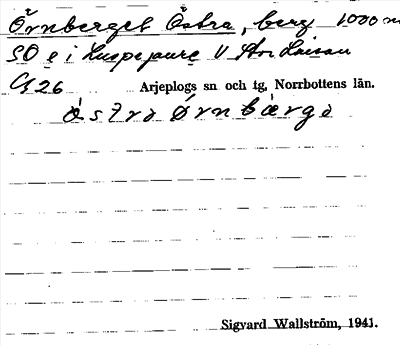 Örnberget Östra, berg 1000 m
SO e i Luspejaure V Stor Laisan
G 26
Arjeplogs sn och tg, Norrbottens län.
östra örnbærge
Sigvard Wallström, 1941.